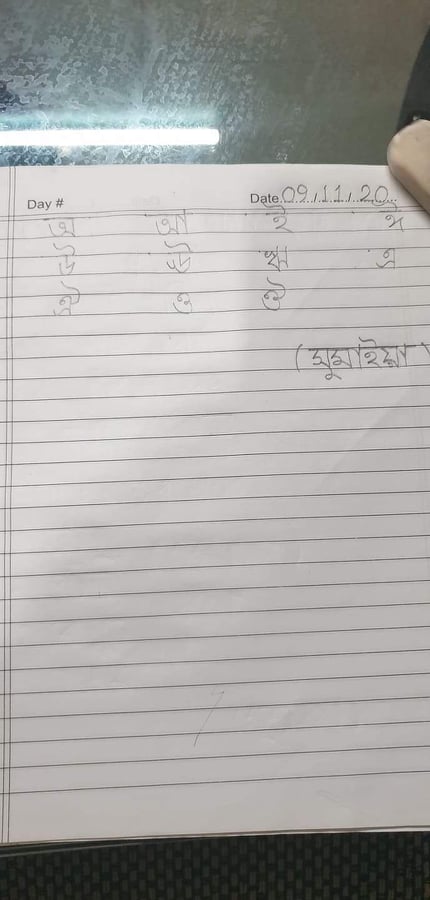 Day # Date 09.11.20
অ আ ই ঈ
উ ঊ ঋ এ
ঐ ও ঔ
(সুমাইয়া)